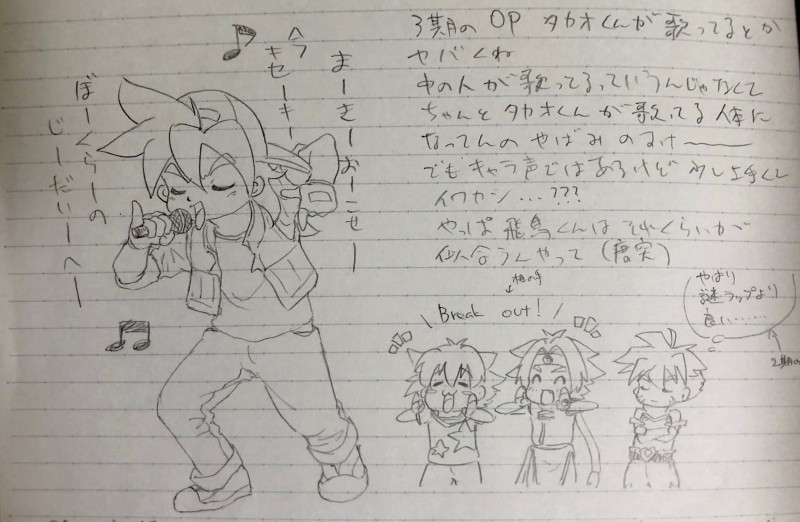 3期のOP タカオくんが歌ってるとか
ヤバくね
中の人が歌ってるっていうんじゃなくて
ちゃんとタカオくんが歌ってる体に
なってんの やばみ のるけ〜
でもキャラ声ではあるけど 少し上手くて
イワカン…???
やっぱ飛鳥くんは それくらいが
似合うんやって (唐突)
まーきーおーこせー
今
キセーキー
ぼーくらーの
じーだいーへー
合の手
\ Break out! /
やはり
謎ラップより
良い……
2期の